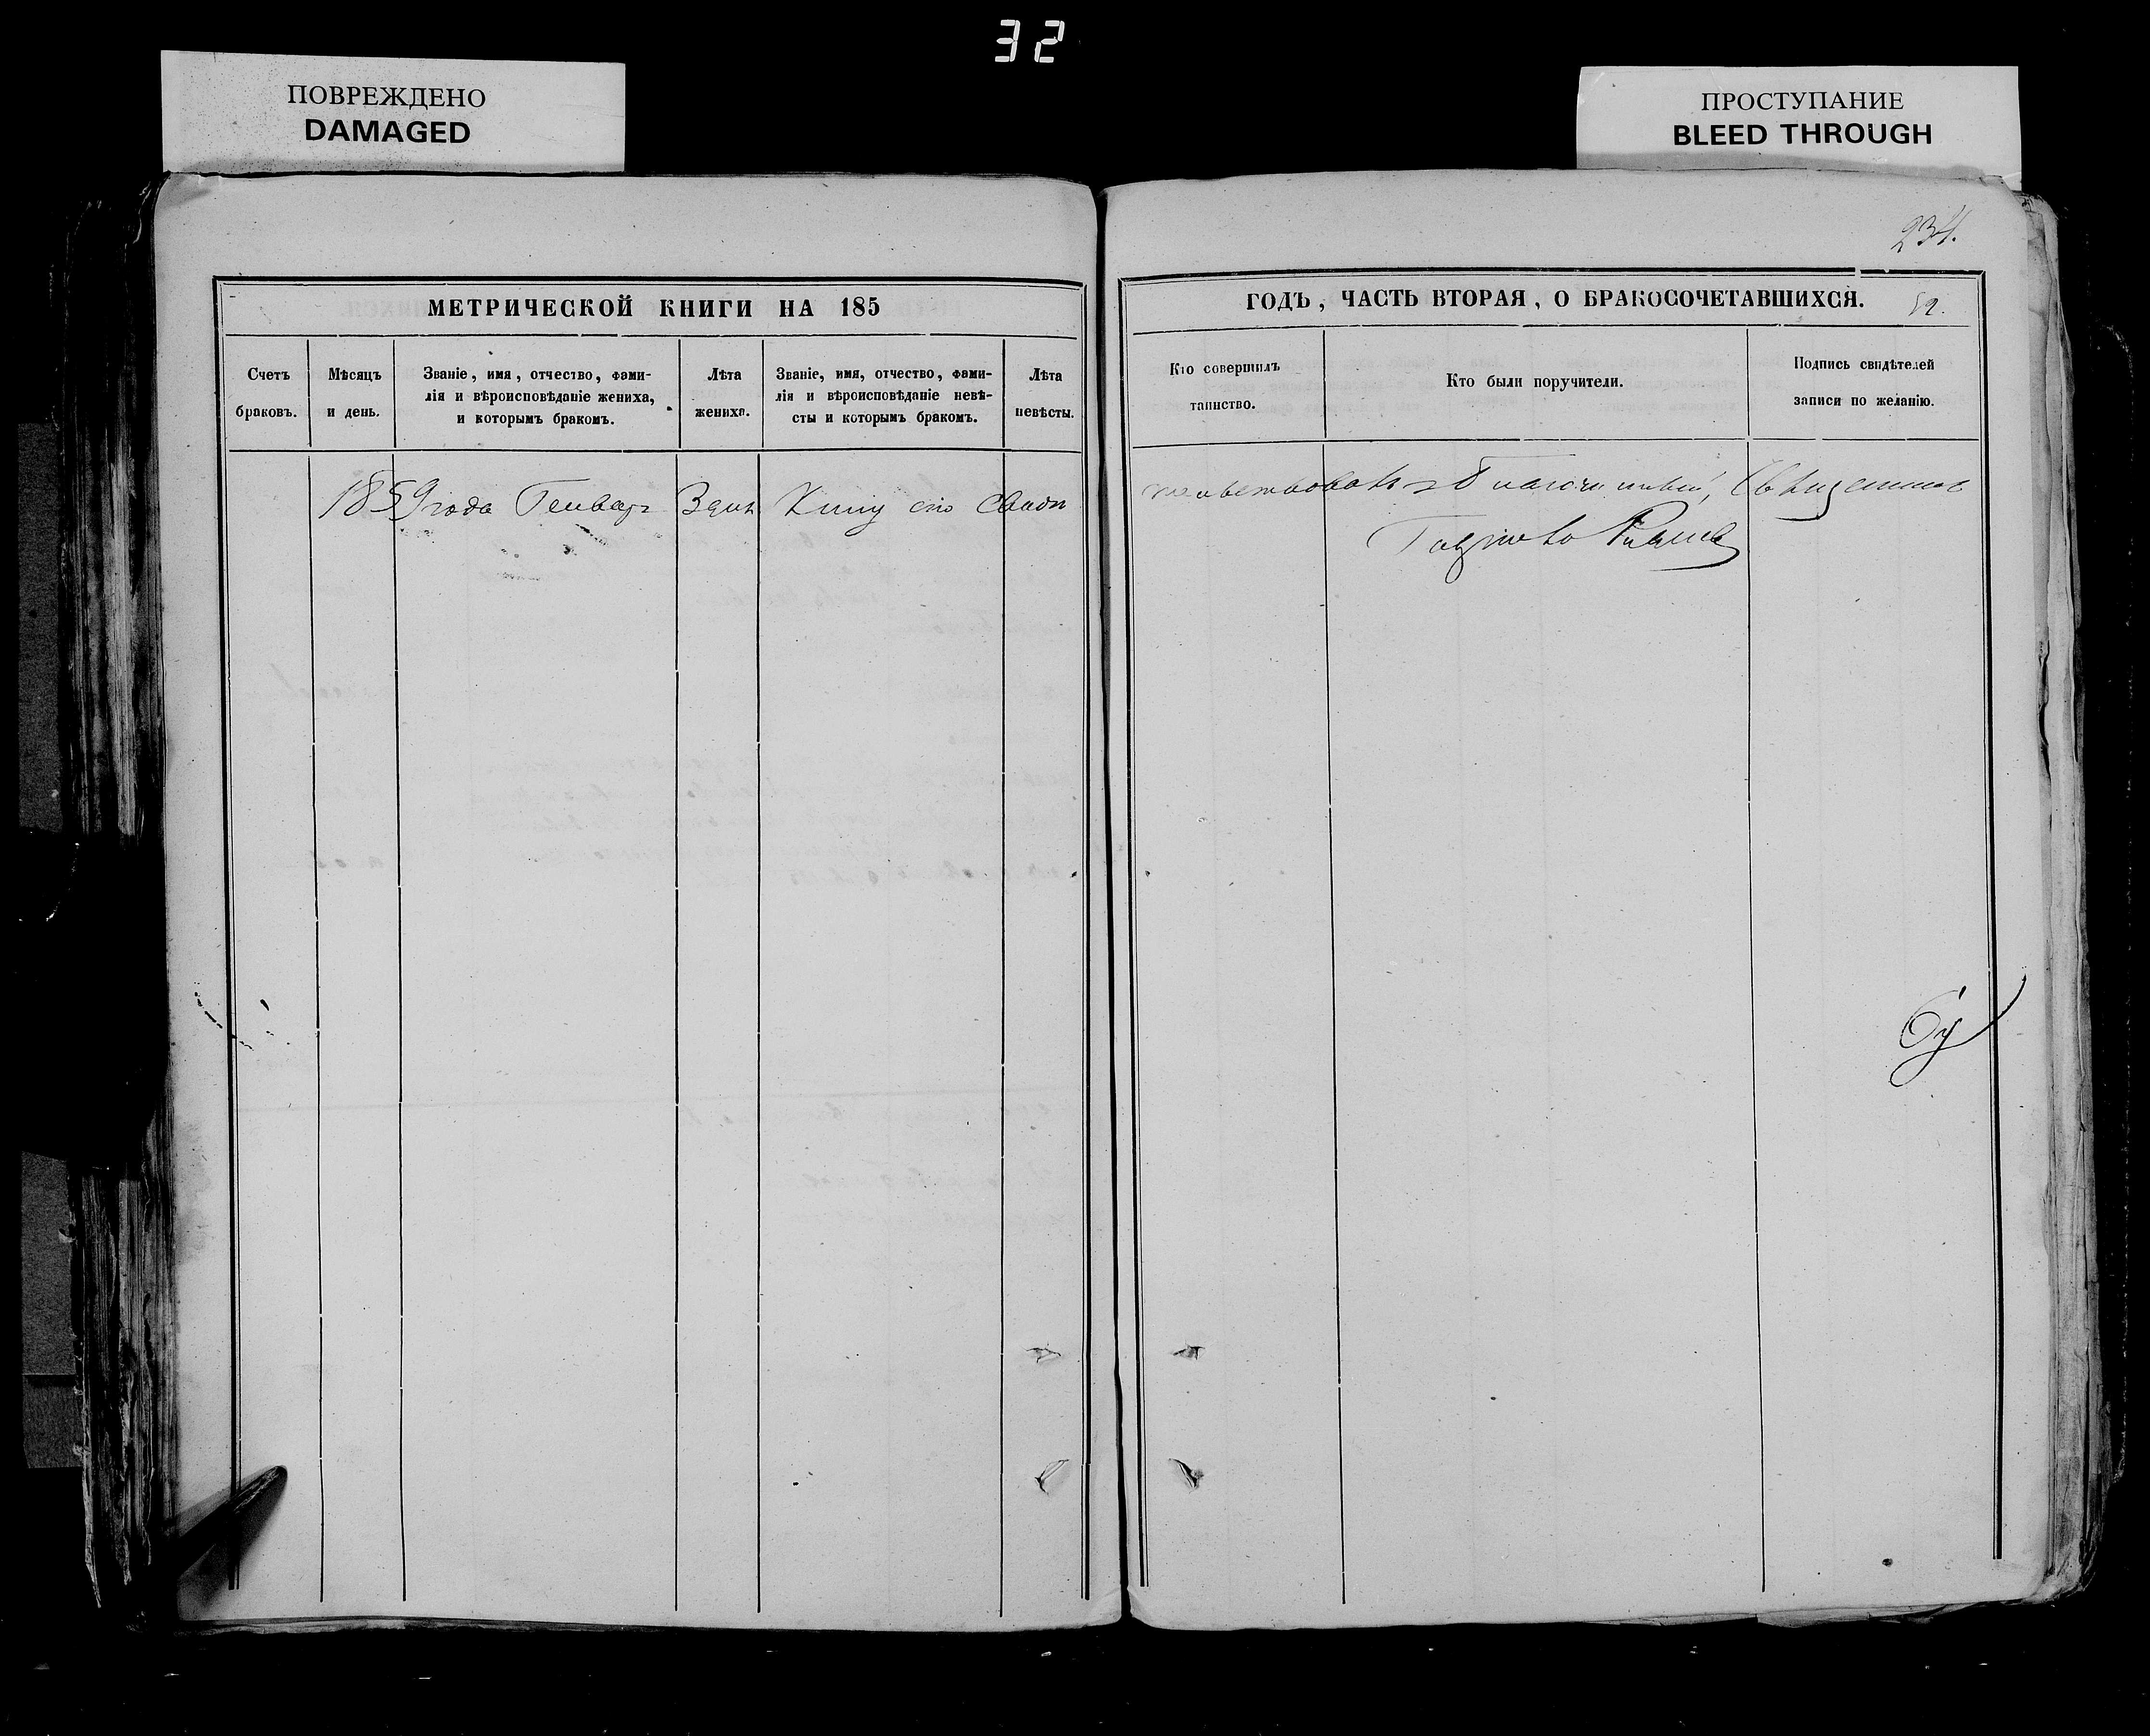 32
ПОВРЕЖДЕНО
DAMAGED
ПРОСТУПАНИЕ
BLEED THROUGH
234.
МЕТРИЧЕСКОЙ КНИГИ НА 185
ГОДЪ, ЧАСТЬ ВТОРАЯ, О БРАКОСОЧЕТАВШИХСЯ.
59.
Счетъ
браковъ.
Мѣсяцъ
и день.
Званіе, имя, отчество, фами-
лія и вѣроисповѣданіе жениха,
и которымъ бракомъ.
Лѣта
жениха.
Званіе, имя, отчество, фами-
лія и вѣроисповѣданіе невѣ-
сты и которымъ бракомъ.
Лѣта
невѣсты.
Кто совершилъ
таинство.
Кто были поручители.
Подпись свидѣтелей
записи по желанію.
1859 года Генваря 3 дня Книгу сію свидѣ
тельствовалъ благочинный, Священникъ